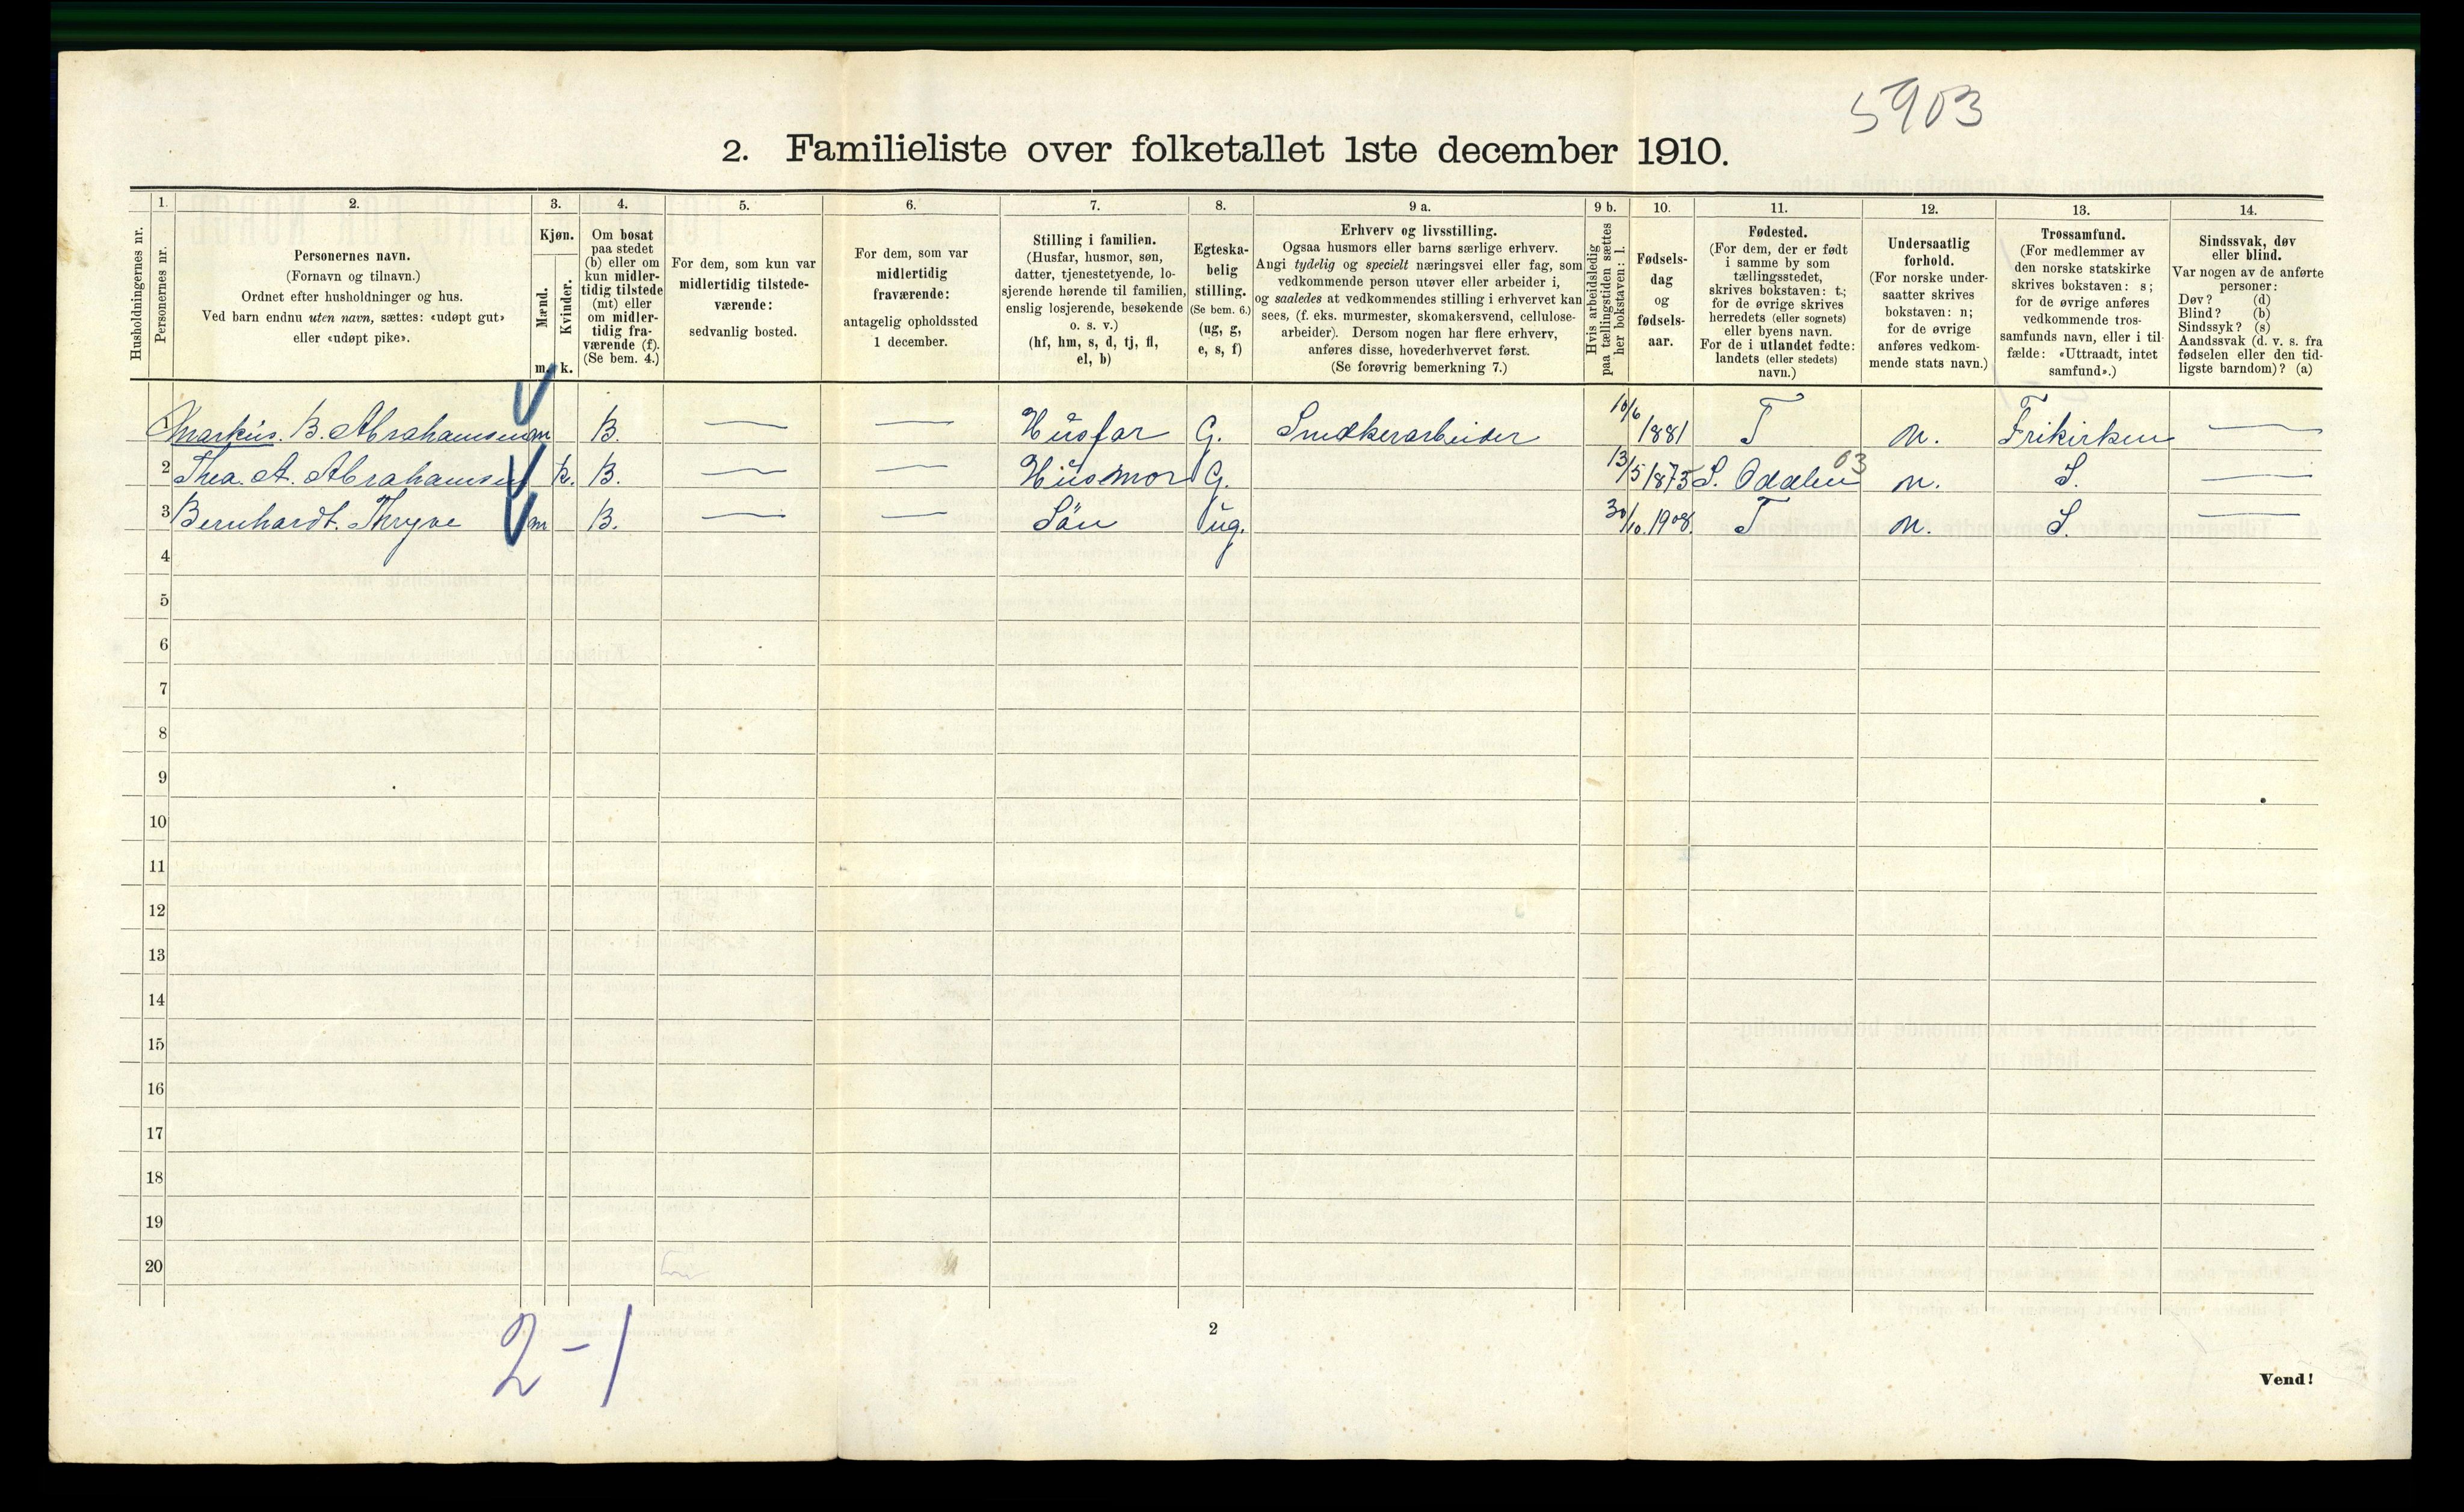 5903
2. Familieliste over folketallet 1ste december 1910.
Husholdningernes nr.
1. Personernes nr.
2. Personernes navn. (Fornavn og tilnavn.) Ordnet efter husholdninger og hus. Ved barn endnu uten navn, sættes: «udøpt gut» eller «udøpt pike».
3. Kjøn. Mænd. m. Kvinder. k.
4. Om bosat paa stedet (b) eller om kun midlertidig tilstede (mt) eller om midlertidig fraværende (f). (Se bem. 4.)
5. For dem, som kun var midlertidig tilstedeværende: sedvanlig bosted.
6. For dem, som var midlertidig fraværende: antagelig opholdssted 1 december.
7. Stilling i familien. (Husfar, husmor, søn, datter, tjenestetyende, losjerende hørende til familien, enslig losjerende, besøkende o. s. v.) (hf, hm, s, d, tj, fl, el, b)
8. Egteskabelig stilling. (Se bem. 6.) (ug, g, e, s, f)
9 a. Erhverv og livsstilling. Ogsaa husmors eller barns særlige erhverv. Angi tydelig og specielt næringsvei eller fag, som vedkommende person utøver eller arbeider i, og saaledes at vedkommendes stilling i erhvervet kan sees, (f. eks. murmester, skomakersvend, cellulosearbeider). Dersom nogen har flere erhverv, anføres disse, hovederhvervet først. (Se forøvrig bemerkning 7.)
9 b. Hvis arbeidsledig paa tællingstiden sættes her bokstaven: l.
10. Fødselsdag og fødselsaar.
11. Fødested. (For dem, der er født i samme by som tællingsstedet, skrives bokstaven: t.; for de øvrige skrives herredets (eller sognets) eller byens navn. For de i utlandet fødte: landets (eller stedets) navn.)
12. Undersaatlig forhold. (For norske undersaatter skrives bokstaven: n; for de øvrige anføres vedkommende stats navn.)
13. Trossamfund. (For medlemmer av den norske statskirke skrives bokstaven: s; for de øvrige anføres vedkommende trossamfunds navn, eller i tilfælde: «Uttraadt, intet samfund».)
14. Sindssvak, døv eller blind. Var nogen av de anførte personer: Døv? (d) Blind? (b) Sindssyk? (s) Aandssvak (d. v. s. fra fødselen eller den tidligste barndom)? (a)
1 Markus. B. Abrahamsen m B. — — Husfar G. Snedkerarbeider 10/6 1881 T n. Frikirken —
2 Thea. A. Abrahamsen k. B. — — Husmor G. 13/5 1875 S. Oddalen 03 n. S. —
3 Bernhardt. Thryve m B. — — Sön ug. 30/10. 1908. T n. S. —
4
5
6
7
8
9
10
11
12
13
14
15
16
17
18
19
20
2-1
2
Vend!